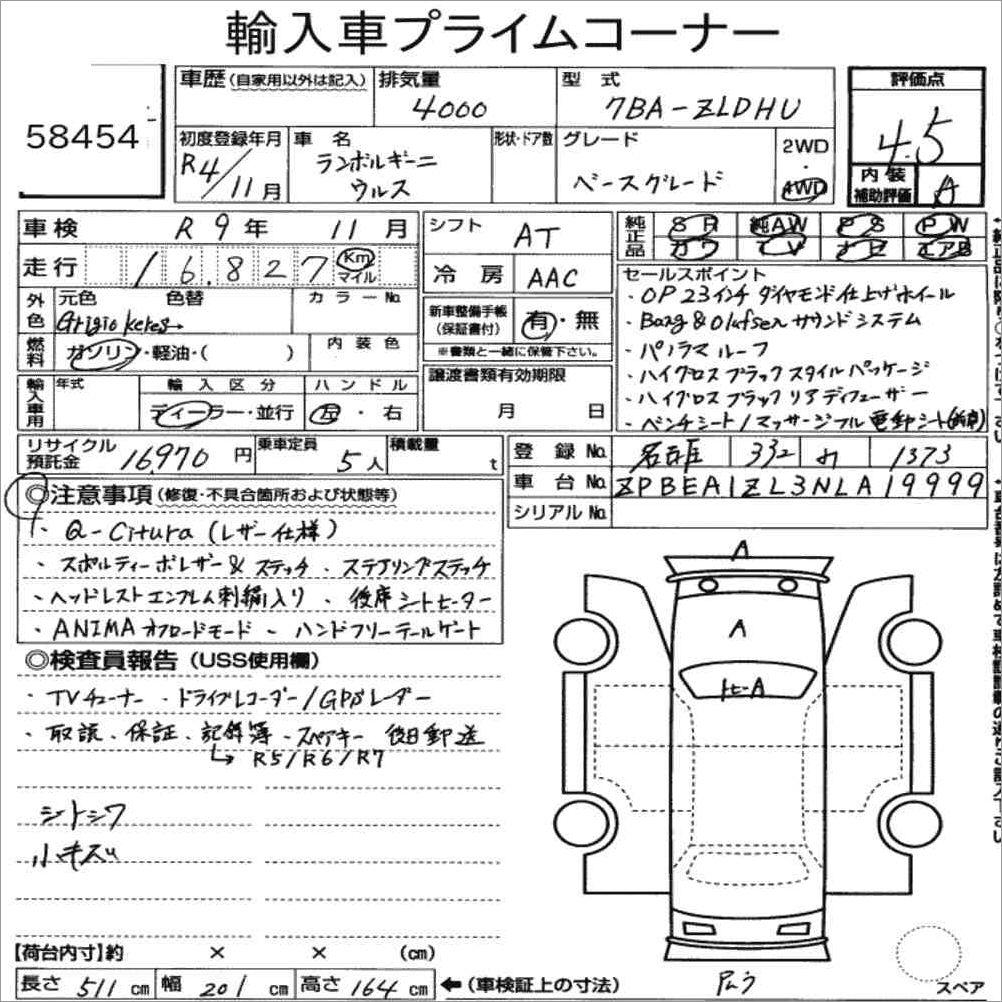 輸入車プライムコーナー
58454
車歴(自家用以外は記入)
排気量
4000
型式
7BA-ZLDHU
評価点
4.5
内装
補助評価
A
初度登録年月
R4/11月
車名
ランボルギーニ
ウルス
形状・ドア数
グレード
ベースグレード
2WD
・
AWD
車検 R9年 11月
走行 16.827 Km
マイル
外色
元色 色替
Grigio Keres→
カラーNo.
燃料
ガソリン・軽油・( )
内装色
輸入車用
年式
輸入区分
ディーラー・並行
ハンドル
左・右
シフト AT
冷房 AAC
新車整備手帳
(保証書付)
有・無
※書類と一緒に保管下さい。
譲渡書類有効期限
月 日
純正品
SR 純AW PS PW
カワ TV ナビ エアB
セールスポイント
・OP 23インチ ダイヤモンド仕上げホイール
・Bang & Olufsen サウンドシステム
・パノラマルーフ
・ハイグロス ブラック スタイル パッケージ
・ハイグロス ブラック リア ディフューザー
・ベンチシート/マッサージフル電動シート(前席)
リサイクル
預託金
16970円
乗車定員
5人
積載量
t
登録No. 名古屋 332 れ 1373
車台No. ZPBEA1ZL3NLA19999
シリアルNo.
◎注意事項(修復・不具合箇所および状態等)
・Q-Citura(レザー仕様)
・スポルティーボレザー&ステッチ・ステアリングステッチ
・ヘッドレストエンブレム刺繍入り・後席シートヒーター
・ANIMAオフロードモード・ハンドフリーテールゲート
◎検査員報告(USS使用欄)
・TVチューナー・ドライブレコーダー/GPSレーダー
・取説、保証、記録簿・スペアキー 後日郵送
↳R5/R6/R7
シートシワ
小キズ
A
A
トビ-A
【荷台内寸】約 × × (cm)
長さ 511cm 幅 201cm 高さ 164cm ←(車検証上の寸法)
スペア